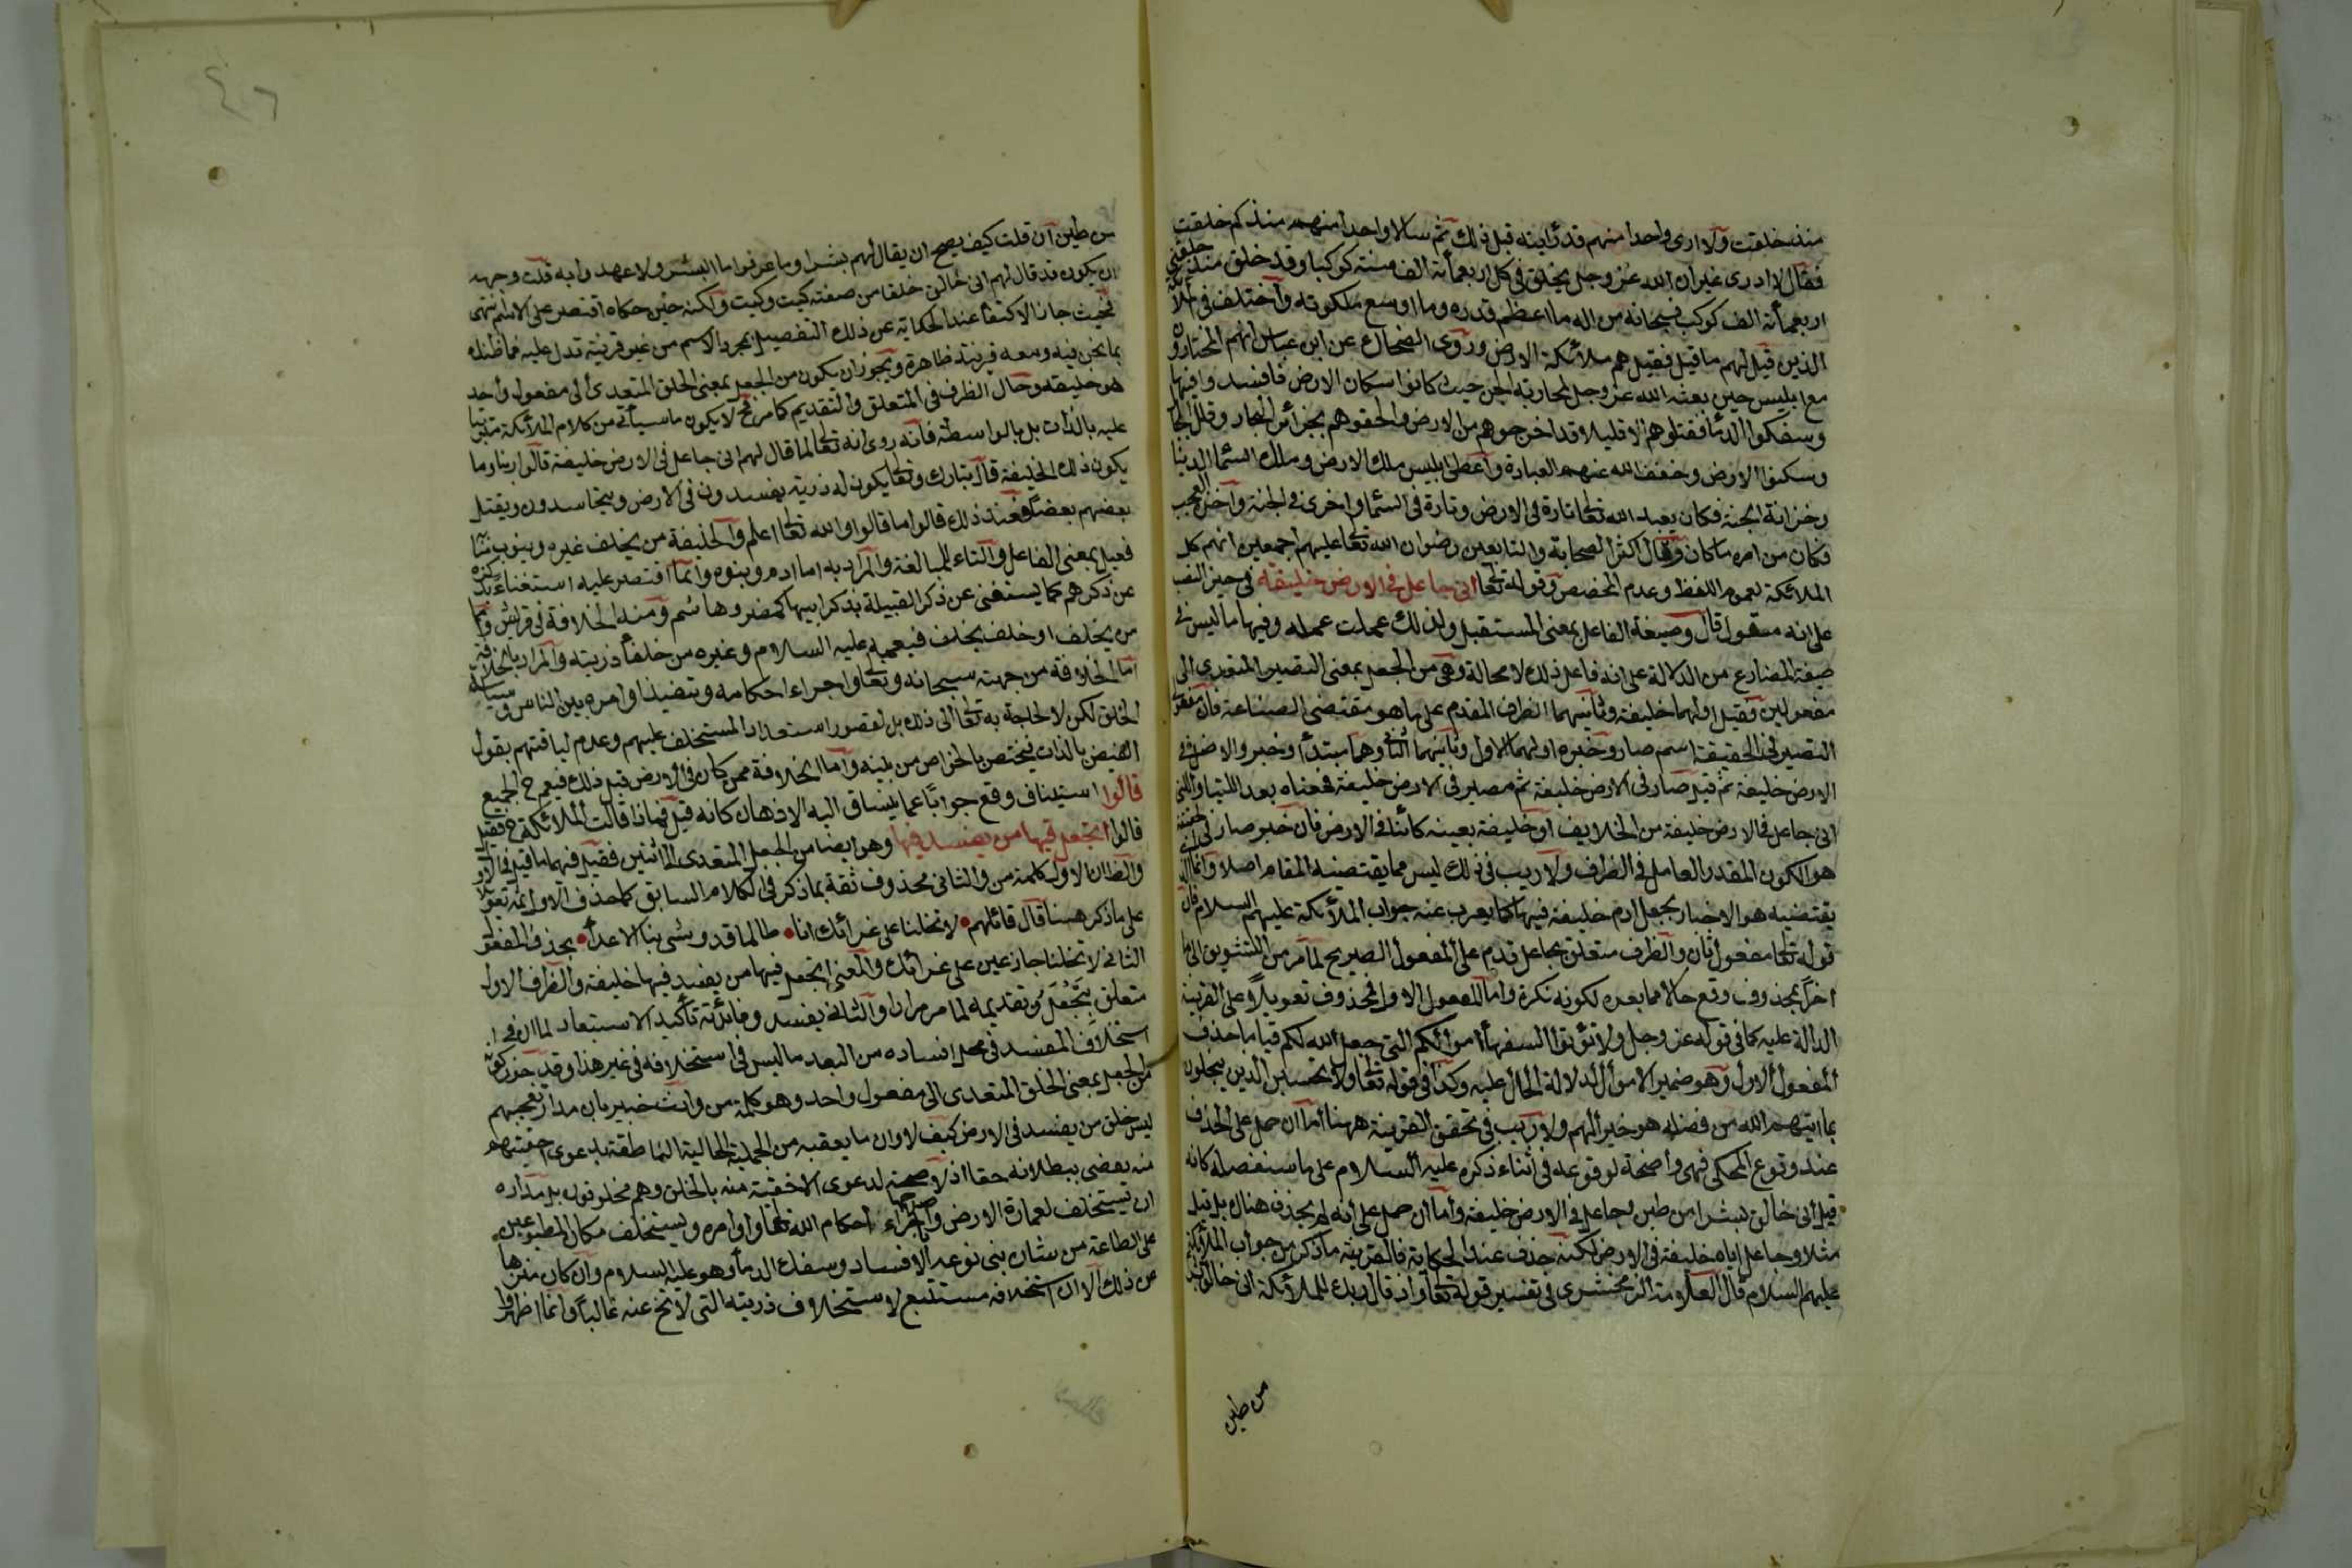 منذ خلقت ولا ارى واحدا منهم قد رأيته قبل ذلك ثم سالا واحدا منهم منذ كم خلقت
فقال لا ادرى غير ان الله عز وجل يخلق فى كل اربعمائة الف سنة كوكبا وقد خلق منذ خلقنى
اربعمائة الف كوكب فسبحانه من اله ما اعظم قدره وما اوسع ملكوته واختلف فى الملائكة
الذين قيل لهم ما قيل فقيل هم ملائكة الارض وروى الضحاك عن ابن عباس انهم المختارون
مع ابليس حين بعثه الله عز وجل لمحاربة الجن حيث كانوا سكان الارض فافسدوا فيها
وسفكوا الدماء فقتلوهم الا قليلا قد اخرجوهم من الارض والحقوهم بجزائر البحار وقلل الجبال
وسكنوا الارض وخفف الله عنهم العبادة واعطى ابليس ملك الارض وملك السماء الدنيا
وخزانة الجنة فكان يعبد الله تعالى تارة فى الارض وتارة فى السماء واخرى فى الجنة واخذه العجب
فكان من امره ما كان وقال اكثر الصحابة والتابعين رضوان الله تعالى عليهم اجمعين انهم كل
الملائكة لعموم اللفظ وعدم المخصص وقوله تعالى انى جاعل فى الارض خليفة فى حيز النصب
على انه مقول قال وصيغة الفاعل بمعنى المستقبل ولذلك عملت عمله وفيها ما ليس فى
صيغة المضارع من الدلالة على انه فاعل ذلك لا محالة وهى من الجعل بمعنى التصيير المتعدى الى
مفعولين فقيل اولهما خليفة وثانيهما الظرف المقدم على ما هو مقتضى الصناعة فان مفعولى
التصيير فى الحقيقة اسم صار وخبره اولهما الاول وثانيهما الثانى وهما مبتدأ وخبر والاصل فى
الارض خليفة ثم قيل صار فى الارض خليفة ثم مصير فى الارض خليفة فمعناه بعد اللتيا والتى
انى جاعل فى الارض خليفة من الخلايف او خليفة بعينه كائنا فى الارض فان خبر صار فى الحقيقة
هو الكون المقدر العامل فى الظرف ولا ريب فى ذلك ليس مما يقتضيه المقام اصلا وانما الذى
يقتضيه هو الاخبار بجعل ادم خليفة فيها كما يعرب عنه جواب الملائكة عليهم السلام فان
قوله تعالى مفعول ثان والظرف متعلق بجاعل قدم على المفعول الصريح لما مر من التشويق الى ما
اخر او بمحذوف وقع حالا مما بعده لكونه نكرة واما المفعول الاول فمحذوف تعويلا على القرينة
الدالة عليه كما فى قوله عز وجل ولا تؤتوا السفهاء اموالكم التى جعل الله لكم قياما حذف
المفعول الاول وهو ضمير الاموال لدلالة الحال عليه وكذا فى قوله تعالى ولا تحسبن الذين يبخلون
بما اتيهم الله من فضله هو خيرا لهم ولا ريب فى تحقق القرينة ههنا اما ان حمل على الحذف
عند وقوع المحكى فهى واضحة لوقوعه فى اثناء ذكره عليه السلام على ما سنفصله كانه
قيل انى خالق بشرا من طين وجاعل فى الارض خليفة واما ان حمل على انه لم يحذف هناك بل قيل
مثلا وجاعل اياه خليفة فى الارض لكنه حذف عند الحكاية فالقرينة ما ذكر من جواب الملائكة
عليهم السلام قال العلامة الزمخشرى فى تفسير قوله تعالى واذ قال ربك للملائكة انى خالق بشرا
من طين
من طين ان قلت كيف يصح ان يقال لهم بشرا وما عرفوا ما البشر ولا عهدوا به قلت وجهه
ان يكون قد قال لهم انى خالق خلقا من صفته كيت وكيت ولكنه حين حكاه اقتصر على الاسم انتهى
فحيث جاز الاكتفاء عند الحكاية عن ذلك التفصيل بمجرد الاسم من غير قرينة تدل عليه فما ظنك
بما نحن فيه ومعه قرينة ظاهرة ويجوز ان يكون من الجعل بمعنى الخلق المتعدى الى مفعول واحد
هو خليفة وحال الظرف فى المتعلق والتقديم كما مر فح لا يكون ما سيأتى من كلام الملائكة مترتبا
عليه بالذات بل بالواسطة فانه روى انه تعالى لما قال لهم انى جاعل فى الارض خليفة قالوا ربنا وما
يكون ذلك الخليفة قال تبارك وتعالى يكون له ذرية يفسدون فى الارض ويتحاسدون ويقتل
بعضهم بعضا فعند ذلك قالوا ما قالوا والله تعالى اعلم والخليفة من يخلف غيره وينوب منابه
فعيل بمعنى الفاعل والتاء للمبالغة والمراد به اما ادم وبنوه وانما اقتصر عليه استغناء بذكره
عن ذكرهم كما يستغنى عن ذكر القبيلة بذكر ابيها كمضر وهاشم ومنه الخلافة فى قريش واما
من يخلف او خلف يخلف فيعمه عليه السلام وغيره من خلفاء ذريته والمراد بالخلافة
اما الخلافة من جهته سبحانه وتعالى واجراء احكامه وتنفيذ اوامره بين الناس وسياسة
الخلق لكن لا لحاجة به تعالى الى ذلك بل لقصور استعداد المستخلف عليهم وعدم لياقتهم بقبول
الفيض بالذات فيختص بالخواص من بنيه واما الخلافة ممن كان فى الارض قبل ذلك فيعم ح الجميع
قالوا استيناف وقع جوابا عما ينساق اليه الاذهان كانه قيل فماذا قالت الملائكة ح فقيل
قالوا اتجعل فيها من يفسد فيها وهو ايضا من الجعل المتعدى الى اثنين فقيل فيهما ما قيل فى الاول
والظ ان الاول كلمة من والثانى محذوف ثقة بما ذكر فى الكلام السابق كما حذف الاول ثمه تعويلا
على ما ذكر هنا قال قائلهم لا تخلنا على غرائك انا طالما قد وشى بنا الاعداء بحذف المفعول
الثانى لا تخلنا جازعين على غرائك والمعنى اتجعل فيها من يفسد فيها خليفة والظرف الاول
متعلق بتجعل وتقديمه لما مر مرارا والثانى بيفسد وفائدته تأكيد الاستبعاد لما ان فى
استخلاف المفسد فى محل افساده من البعد ما ليس فى استخلافه فى غير هذا وقد جوز كونه
من الجعل بمعنى الخلق المتعدى الى مفعول واحد وهو كلمة من وانت خبير بان مدار تعجبهم
ليس خلق من يفسد فى الارض كيف لا وان ما يعقبه من الجملة الحالية الناطقة بدعوى احقيتهم
منه يقضى ببطلانه حقا اذ لا صحة لدعوى الاحقية منه بالخلق وهم مخلوقون بل مداره
ان يستخلف لعمارة الارض واصلاحها باجراء احكام الله تعالى واوامره ويستخلف مكان المطبوعين
على الطاعة من شان بنى نوعه الافساد وسفك الدماء وهو عليه السلام وان كان منزها
عن ذلك الا ان استخلافه مستتبع لاستخلاف ذريته التى لا تخ عنه غالبا وانما اظهروا